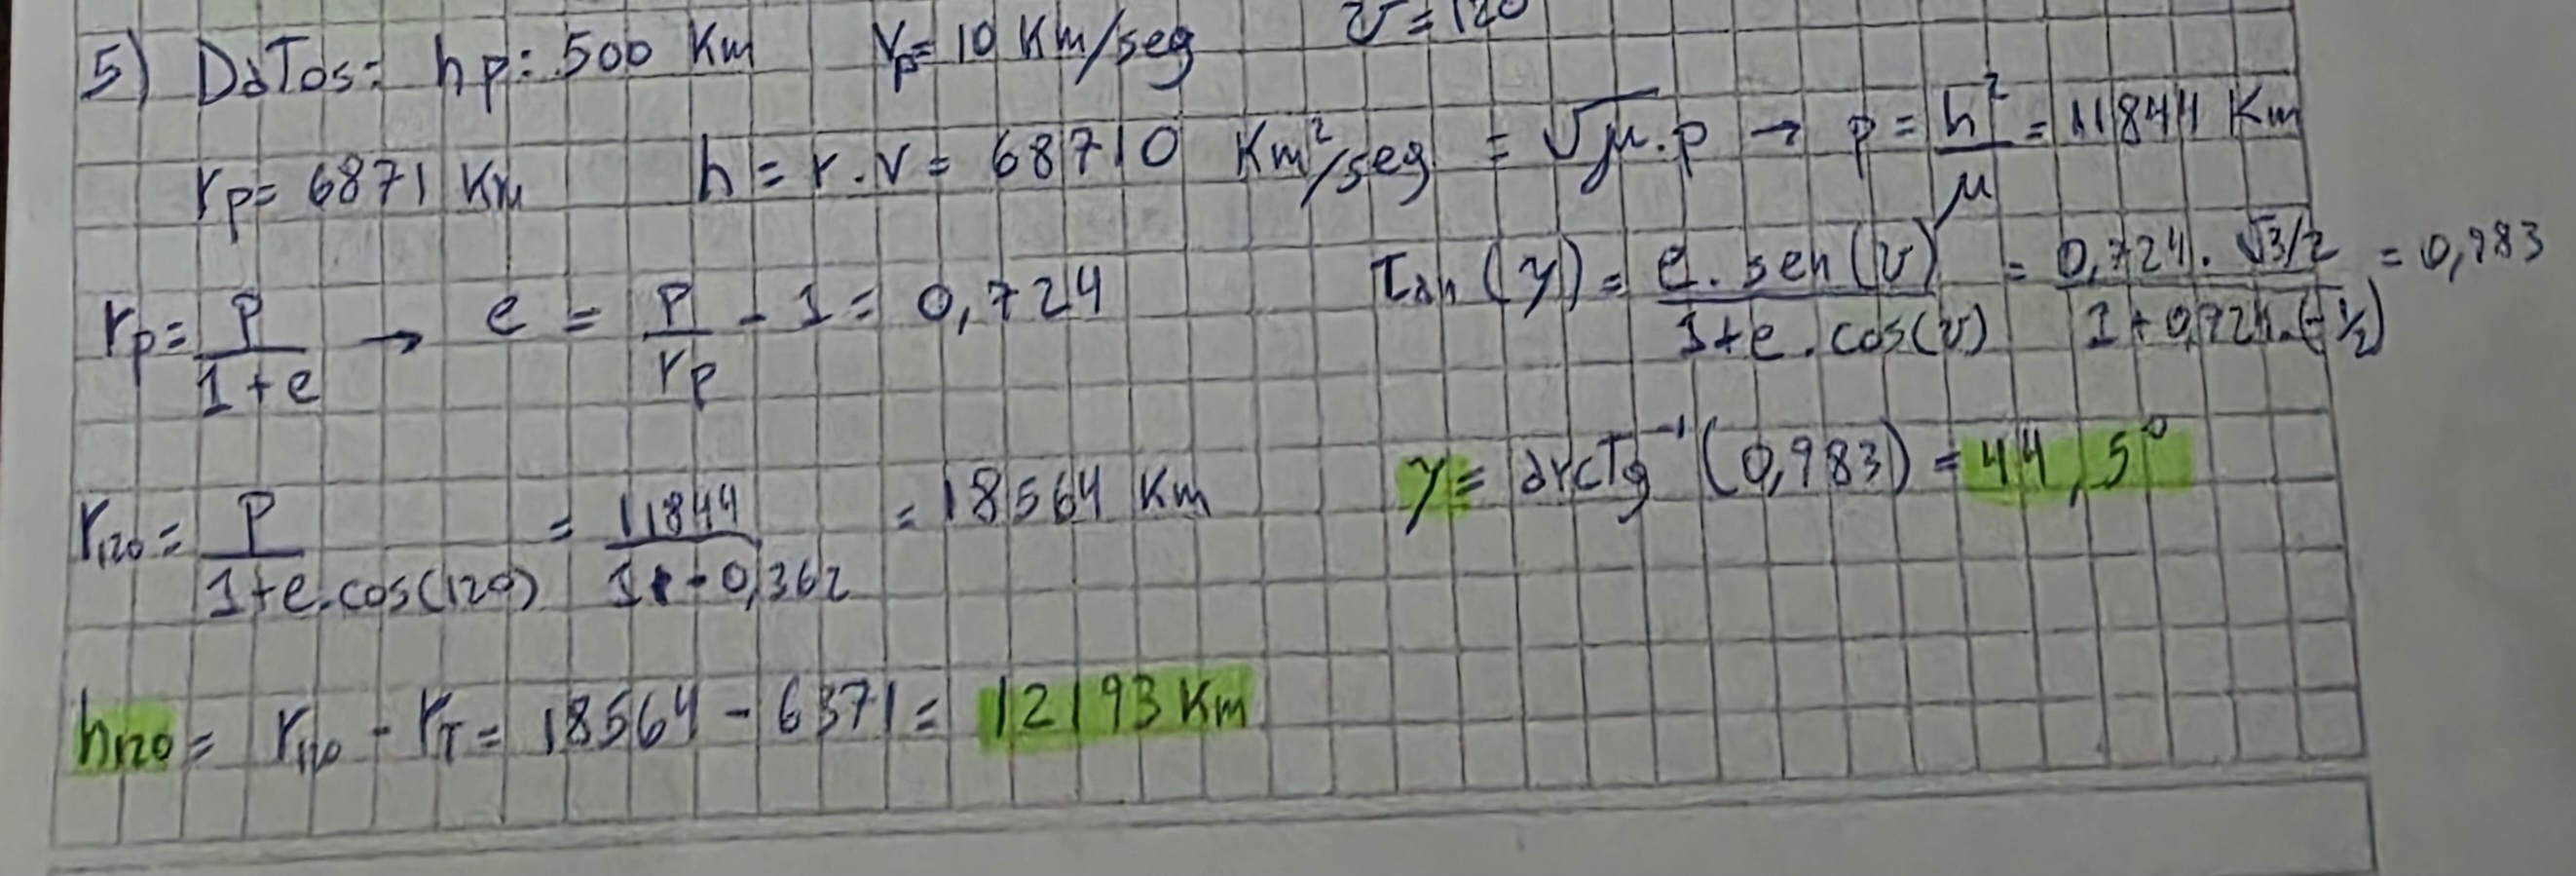 5) Datos: hp: 500 Km Vp= 10 Km/seg υ = 120
rp= 6871 Km h = r.v = 68710 Km²/seg = √μ.p → p = h²/μ = 11844 Km
rp= p/(1+e) → e = p/rp - 1 = 0,724 Tan (γ) = e. sen(υ)/(1+e.cos(υ)) = 0,724. √3/2/(1+0,724.(-1/2)) = 0,983
r120 = p/(1+e.cos(120)) = 11844/(1-0,362) = 18564 Km γ = arcTg⁻¹ (0,983) = 44,5°
h120 = r120 - rT = 18564 - 6371 = 12193 Km